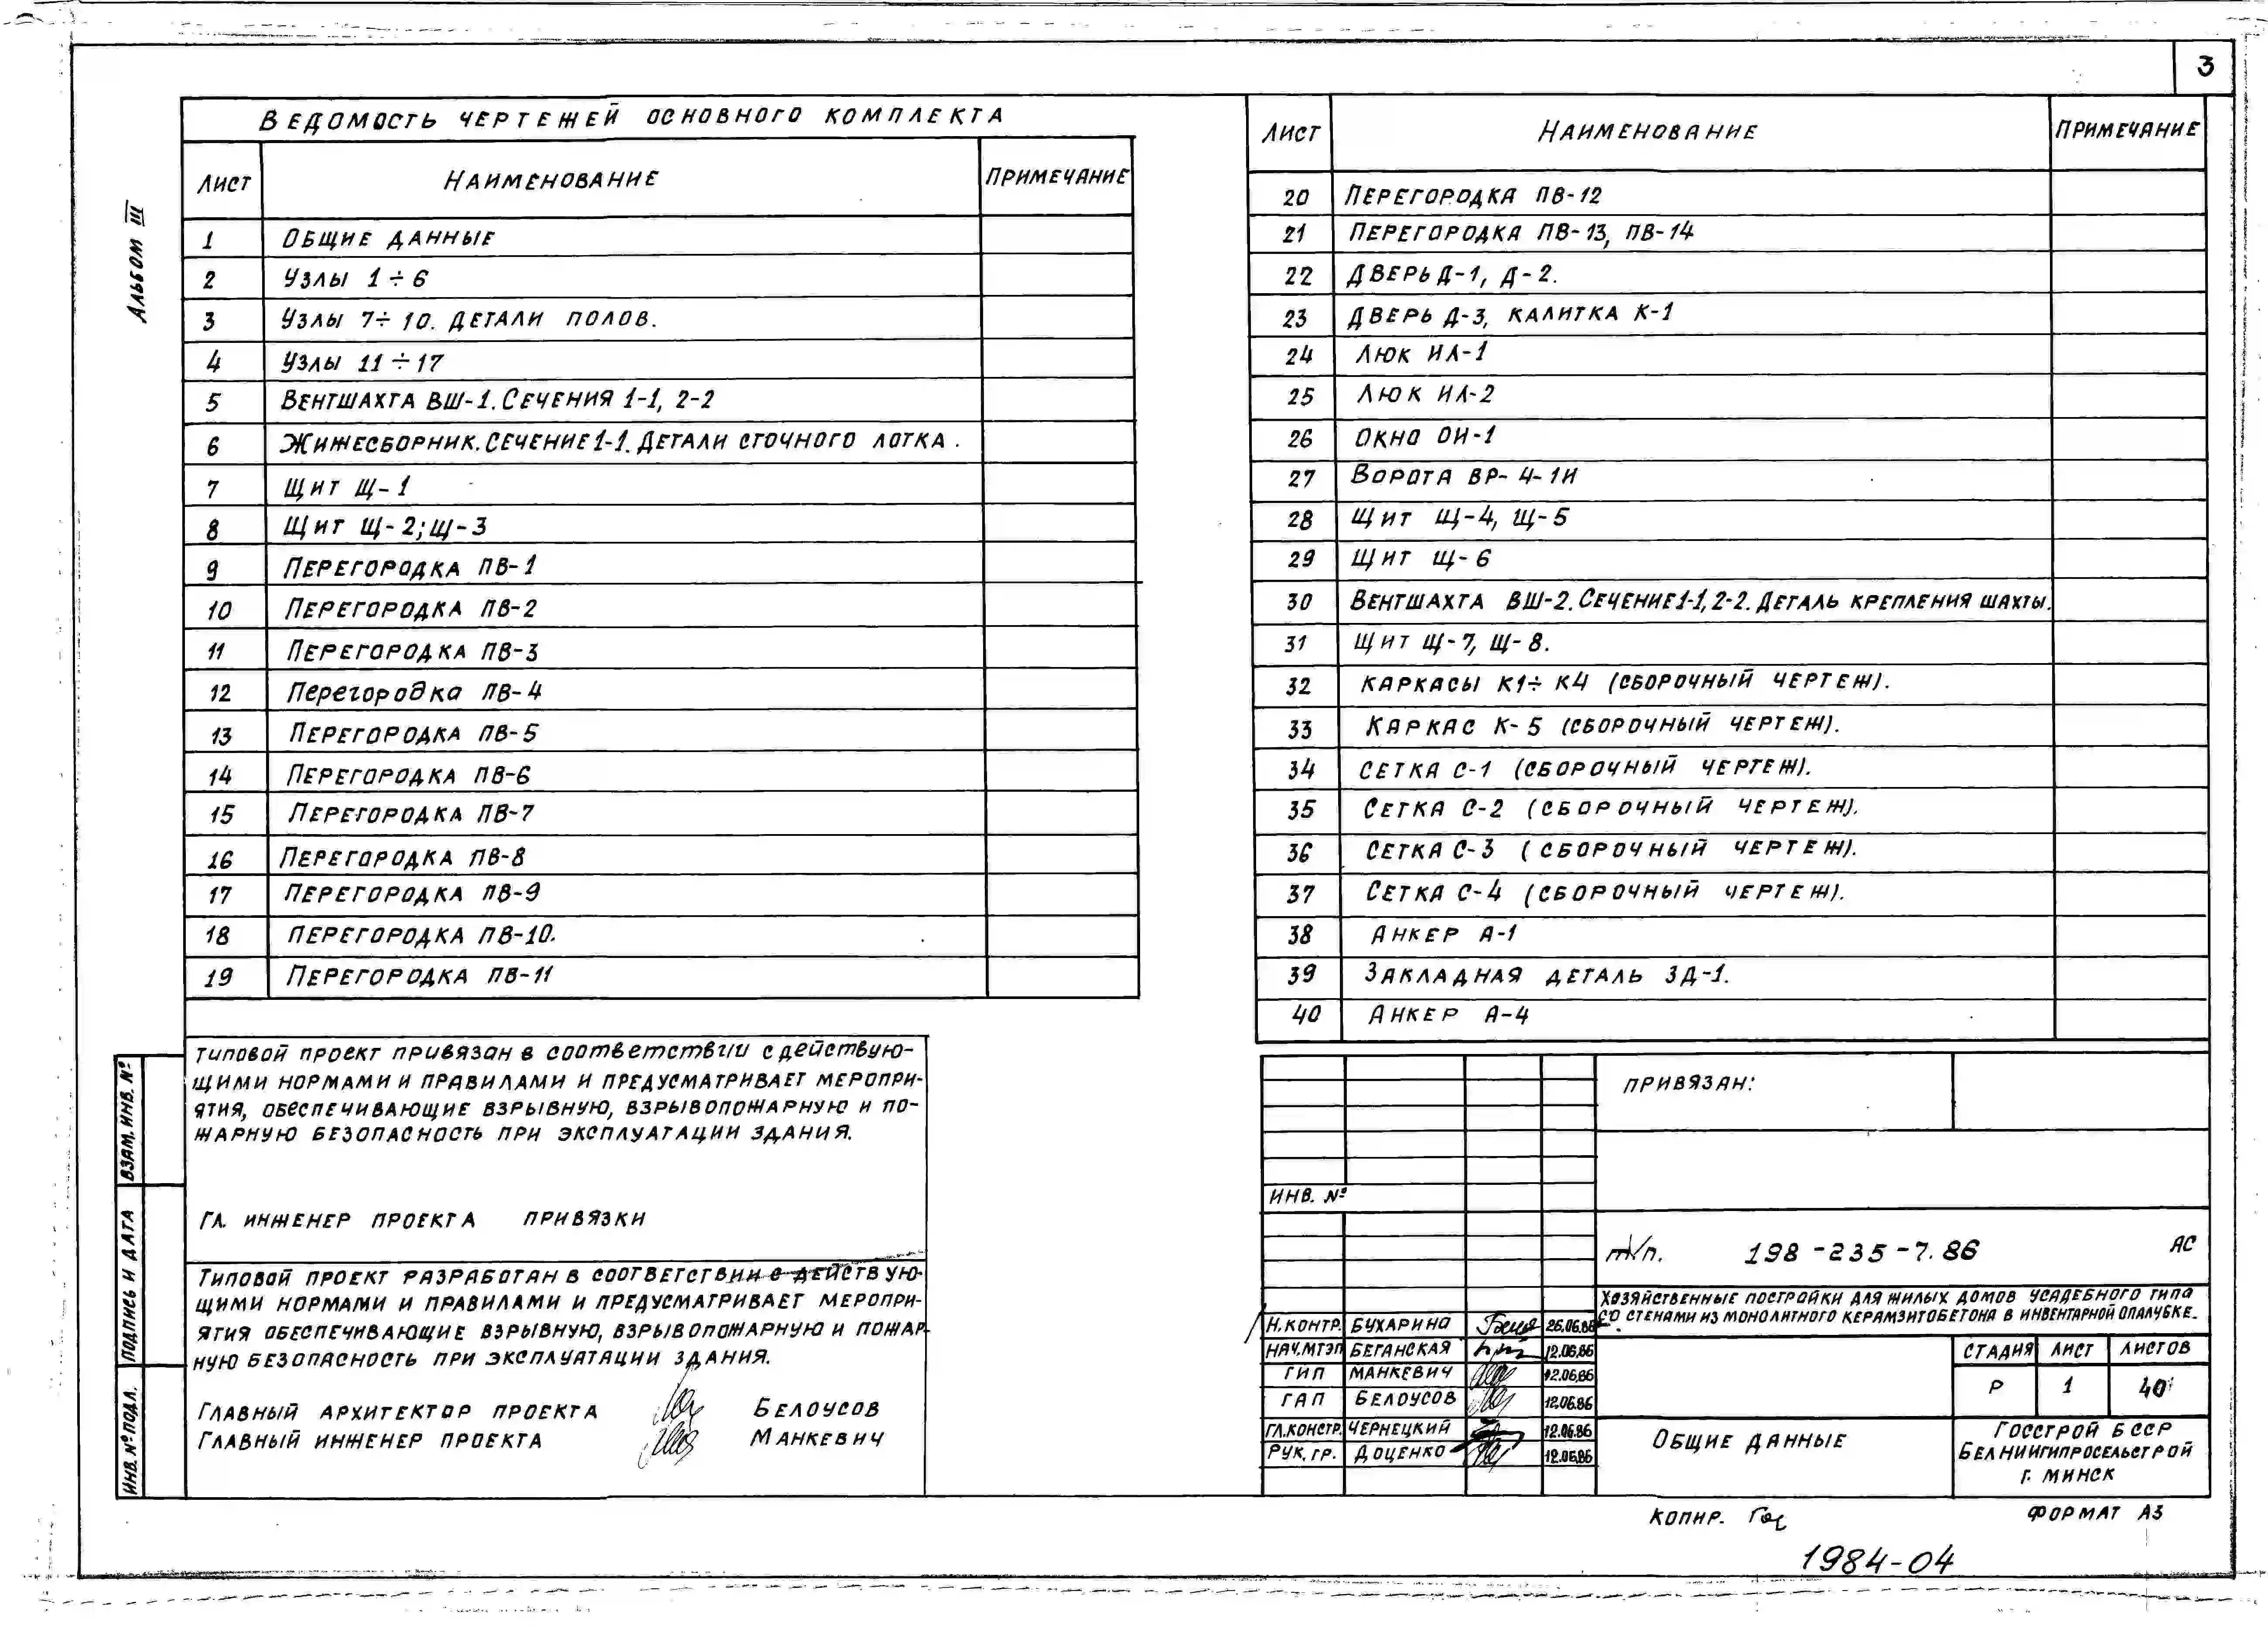 3
Альбом III
Ведомость чертежей основного комплекта
Лист Наименование Примечание
1 Общие данные
2 Узлы 1÷6
3 Узлы 7÷10. Детали полов.
4 Узлы 11÷17
5 Вентшахта ВШ-1. Сечения 1-1, 2-2
6 Жижесборник. Сечение 1-1. Детали сточного лотка.
7 Щит Щ-1
8 Щит Щ-2; Щ-3
9 Перегородка ПВ-1
10 Перегородка ПВ-2
11 Перегородка ПВ-3
12 Перегородка ПВ-4
13 Перегородка ПВ-5
14 Перегородка ПВ-6
15 Перегородка ПВ-7
16 Перегородка ПВ-8
17 Перегородка ПВ-9
18 Перегородка ПВ-10.
19 Перегородка ПВ-11
Лист Наименование Примечание
20 Перегородка ПВ-12
21 Перегородка ПВ-13, ПВ-14
22 Дверь Д-1, Д-2.
23 Дверь Д-3, калитка К-1
24 Люк ИЛ-1
25 Люк ИЛ-2
26 Окно ОИ-1
27 Ворота ВР-4-1И
28 Щит Щ-4, Щ-5
29 Щит Щ-6
30 Вентшахта ВШ-2. Сечение 1-1, 2-2. Деталь крепления шахты.
31 Щит Щ-7, Щ-8.
32 Каркасы К1÷К4 (сборочный чертеж).
33 Каркас К-5 (сборочный чертеж).
34 Сетка С-1 (сборочный чертеж).
35 Сетка С-2 (сборочный чертеж).
36 Сетка С-3 (сборочный чертеж).
37 Сетка С-4 (сборочный чертеж).
38 Анкер А-1
39 Закладная деталь ЗД-1.
40 Анкер А-4
Типовой проект привязан в соответствии с действую-
щими нормами и правилами и предусматривает меропри-
ятия, обеспечивающие взрывную, взрывопожарную и по-
жарную безопасность при эксплуатации здания.
Гл. инженер проекта привязки
Типовой проект разработан в соответствии с действую-
щими нормами и правилами и предусматривает меропри-
ятия обеспечивающие взрывную, взрывопожарную и пожар-
ную безопасность при эксплуатации здания.
Главный архитектор проекта Белоусов
Главный инженер проекта Манкевич
Взам. инв. №
Подпись и дата
Инв. № подл.
Привязан:
Инв. №
т/п. 198-235-7.86 АС
Хозяйственные постройки для жилых домов усадебного типа
со стенами из монолитного керамзитобетона в инвентарной опалубке.
Н.контр. Бухарина 26.06.86
Нач.МТЭП Беганская 12.06.86
ГИП Манкевич 12.06.86
ГАП Белоусов 12.06.86
Гл.констр. Чернецкий 12.06.86
Рук. гр. Доценко 12.06.86
Стадия Лист Листов
Р 1 40
Общие данные
Госстрой БССР
БелНИИгипросельстрой
г. Минск
Копир.
Формат А3
1984-04